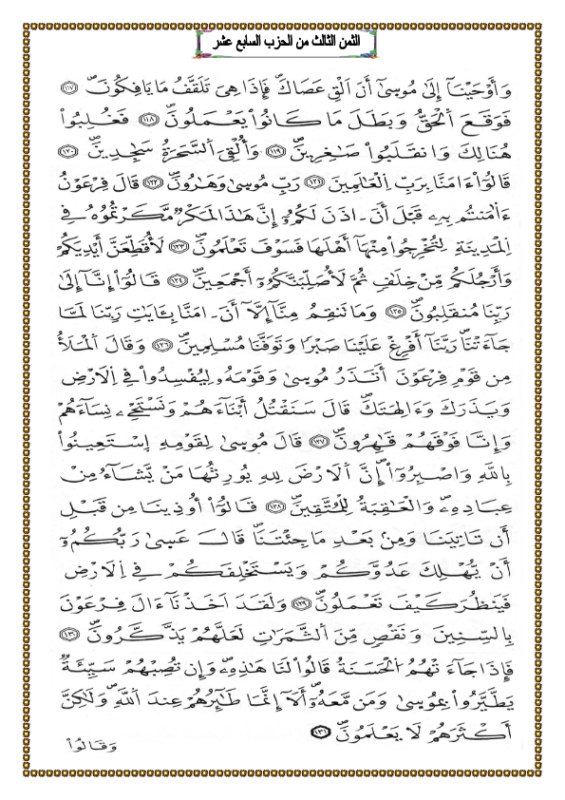 الثمن الثالث من الحزب السابع عشر
وَأَوْحَيْنَآ إِلَىٰ مُوسَىٰٓ أَنْ اَلْقِ عَصَاكَۖ فَإِذَا هِىَ تَلَقَّفُ مَا يَافِكُونَۖ ١١٧
فَوَقَعَ اَ۬لْحَقُّ وَبَطَلَ مَا كَانُواْ يَعْمَلُونَۖ ١١٨ فَغُلِبُواْ
هُنَالِكَ وَانقَلَبُواْ صَٰغِرِينَۖ ١١٩ وَأُلْقِىَ اَ۬لسَّحَرَةُ سَٰجِدِينَۖ ١٢٠
قَالُوٓاْ ءَامَنَّا بِرَبِّ اِ۬لْعَٰلَمِينَ ١٢١ رَبِّ مُوسَىٰ وَهَٰرُونَۖ ١٢٢ قَالَ فِرْعَوْنُ
ءَاٰمَنتُم بِهِۦ قَبْلَ أَنَ ـ اذَنَ لَكُمُۥٓ إِنَّ هَٰذَا لَمَكْرٌ مَّكَرْتُمُوهُ فِى
اِ۬لْمَدِينَةِ لِتُخْرِجُواْ مِنْهَآ أَهْلَهَا فَسَوْفَ تَعْلَمُونَۖ ١٢٣ لَأُقَطِّعَنَّ أَيْدِيَكُمْ
وَأَرْجُلَكُم مِّنْ خِلَٰفٍ ثُمَّ لَأُصَلِّبَنَّكُمُۥٓ أَجْمَعِينَۖ ١٢٤ قَالُوٓاْ إِنَّآ إِلَىٰ
رَبِّنَا مُنقَلِبُونَۖ ١٢٥ وَمَا تَنقِمُ مِنَّآ إِلَّآ أَنَ ـ امَنَّا بِـَٔايَٰتِ رَبِّنَا لَمَّا
جَآءَتْنَاۖ رَبَّنَآ أَفْرِغْ عَلَيْنَا صَبْرًا وَتَوَفَّنَا مُسْلِمِينَۖ ١٢٦ وَقَالَ اَ۬لْمَلَأُ
مِن قَوْمِ فِرْعَوْنَ أَتَذَرُ مُوسَىٰ وَقَوْمَهُۥ لِيُفْسِدُواْ فِى اِ۬لَارْضِ
وَيَذَرَكَ وَءَالِهَتَكَۖ قَالَ سَنَقْتُلُ أَبْنَآءَهُمْ وَنَسْتَحْىِۦ نِسَآءَهُمْ
وَإِنَّا فَوْقَهُمْ قَٰهِرُونَۖ ١٢٧ قَالَ مُوسَىٰ لِقَوْمِهِ اِ۪سْتَعِينُواْ
بِاللَّهِ وَاصْبِرُوٓاْۖ إِنَّ اَ۬لَارْضَ لِلهِ يُورِثُهَا مَنْ يَّشَآءُ مِنْ
عِبَادِهِۦۖ وَالْعَٰقِبَةُ لِلْمُتَّقِينَۖ ١٢٨ قَالُوٓاْ أُوذِينَا مِن قَبْلِ
أَن تَاتِيَنَا وَمِنۢ بَعْدِ مَا جِئْتَنَاۖ قَالَ عَسَىٰ رَبُّكُمُۥٓ
أَنْ يُّهْلِكَ عَدُوَّكُمْ وَيَسْتَخْلِفَكُمْ فِى اِ۬لَارْضِ
فَيَنظُرَ كَيْفَ تَعْمَلُونَۖ ١٢٩ وَلَقَدَ اَخَذْنَآ ءَالَ فِرْعَوْنَ
بِالسِّنِينَ وَنَقْصٍ مِّنَ اَ۬لثَّمَرَٰتِ لَعَلَّهُمْ يَذَّكَّرُونَۖ ١٣٠
فَإِذَا جَآءَتْهُمُ اُ۬لْحَسَنَةُ قَالُواْ لَنَا هَٰذِهِۦۖ وَإِن تُصِبْهُمْ سَيِّئَةٌۭ
يَطَّيَّرُواْ بِمُوسَىٰ وَمَن مَّعَهُۥٓۖ أَلَآ إِنَّمَا طَٰٓئِرُهُمْ عِندَ اَ۬للَّهِ وَلَٰكِنَّ
أَكْثَرَهُمْ لَا يَعْلَمُونَۖ ١٣١
وَقَالُواْ